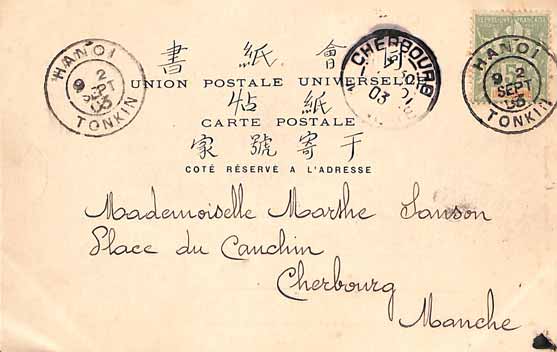 書 紙 會
UNION POSTALE UNIVERSELLE
帖 紙
CARTE POSTALE
家 號 寄 于
COTÉ RÉSERVÉ A L'ADRESSE
HANOI
9 2
SEPT
03
TONKIN
CHERBOURG
03
HANOI
9 2
SEPT
03
TONKIN
Mademoiselle Marthe Sanson
Place du Cauchin
Cherbourg
Manche